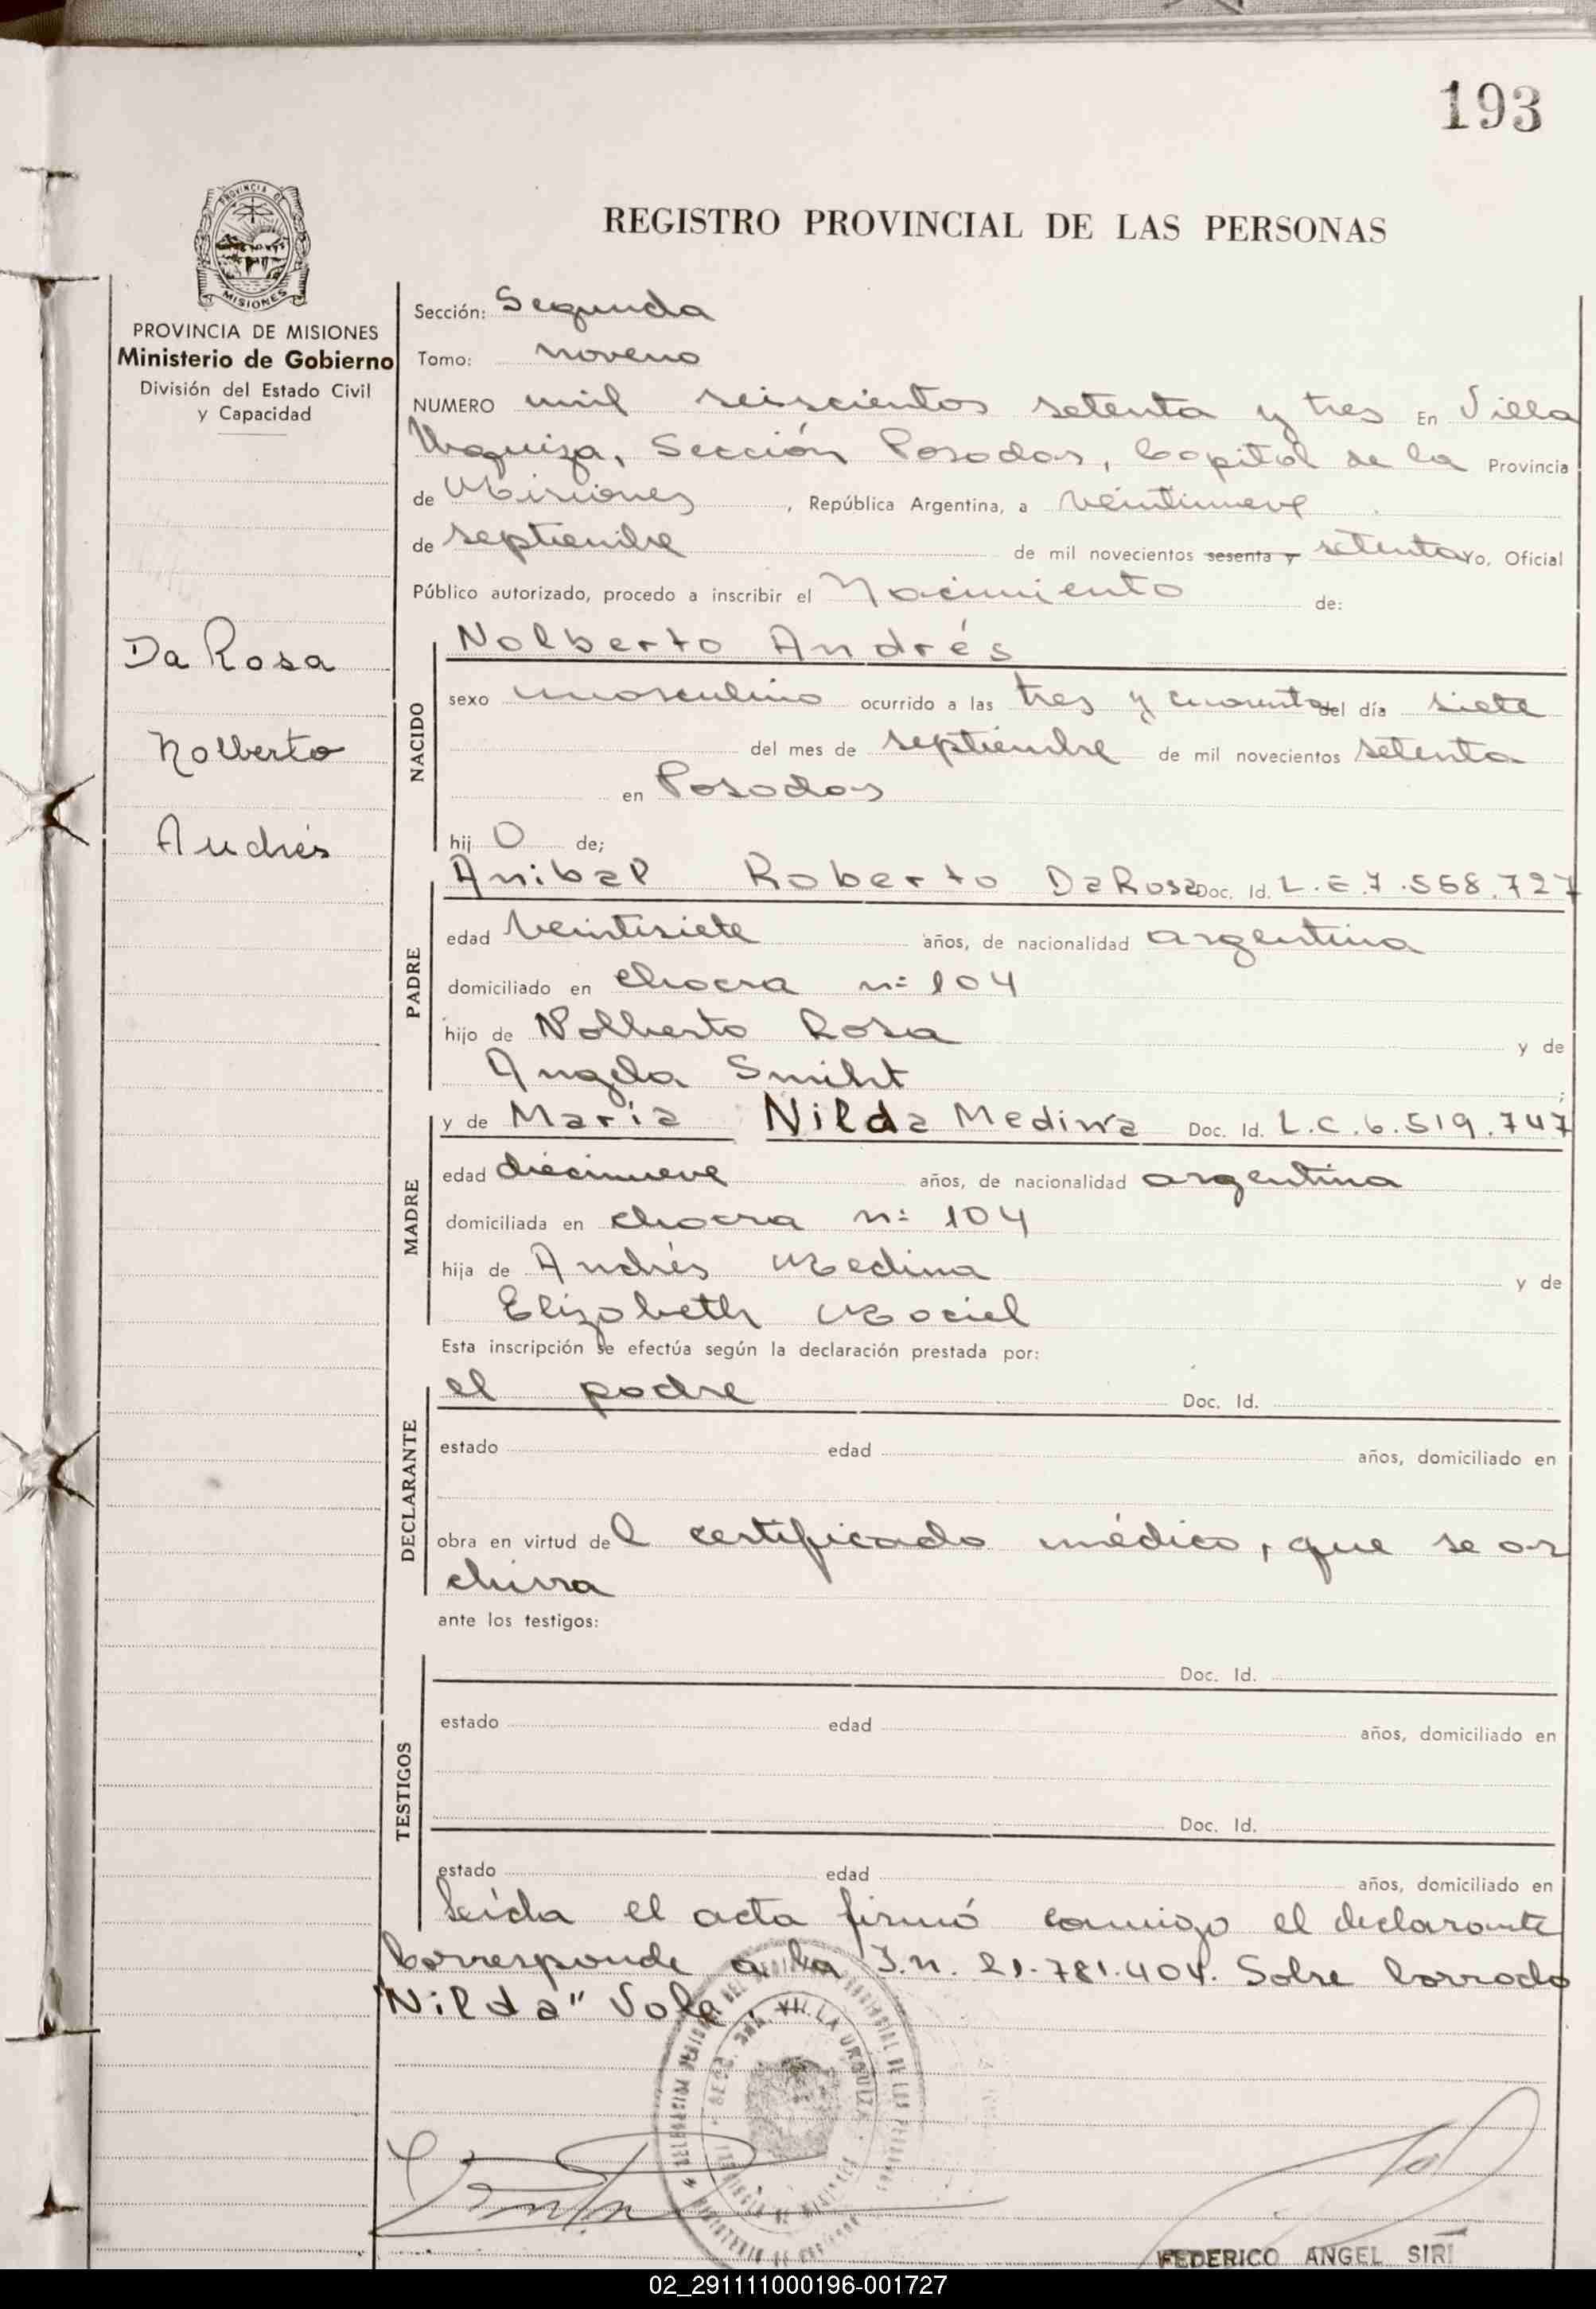 193
PROVINCIA DE
MISIONES
REGISTRO PROVINCIAL DE LAS PERSONAS
PROVINCIA DE MISIONES
Ministerio de Gobierno
División del Estado Civil
y Capacidad
Sección: Segunda
Tomo: noveno
NUMERO mil seiscientos setenta y tres En Villa
Urquiza, Sección Posadas, Capital de la Provincia
de Misiones, República Argentina, a veintinueve
de septiembre de mil novecientos sesenta y setenta yo, Oficial
Público autorizado, procedo a inscribir el Nacimiento de:
Da Rosa
Nolberto
Andrés
NACIDO
Nolberto Andrés
sexo masculino ocurrido a las tres y cuarenta del día siete
del mes de septiembre de mil novecientos setenta
en Posadas
hij O de;
PADRE
Anibal Roberto DaRosa Doc. Id. L.E.7.558.727
edad veintisiete años, de nacionalidad argentina
domiciliado en chacra nº 104
hijo de Nolberto Rosa y de
Angela Smiht;
MADRE
y de María Nilda Medina Doc. Id. L.C.6.519.747
edad diecinueve años, de nacionalidad argentina
domiciliada en chacra nº 104
hija de Andrés Medina y de
Elizabeth Maciel
Esta inscripción se efectúa según la declaración prestada por:
DECLARANTE
el padre Doc. Id.
estado edad años, domiciliado en
obra en virtud del certificado médico, que se ar
chiva
ante los testigos:
TESTIGOS
Doc. Id.
estado edad años, domiciliado en
Doc. Id.
estado edad años, domiciliado en
Leída el acta firmó conmigo el declarante
Corresponde a la I.n. 21.781.404. Sobre borrado
"Nilda" Vale
VILLA URQUIZA
FEDERICO ANGEL SIRI
02_291111000196-001727